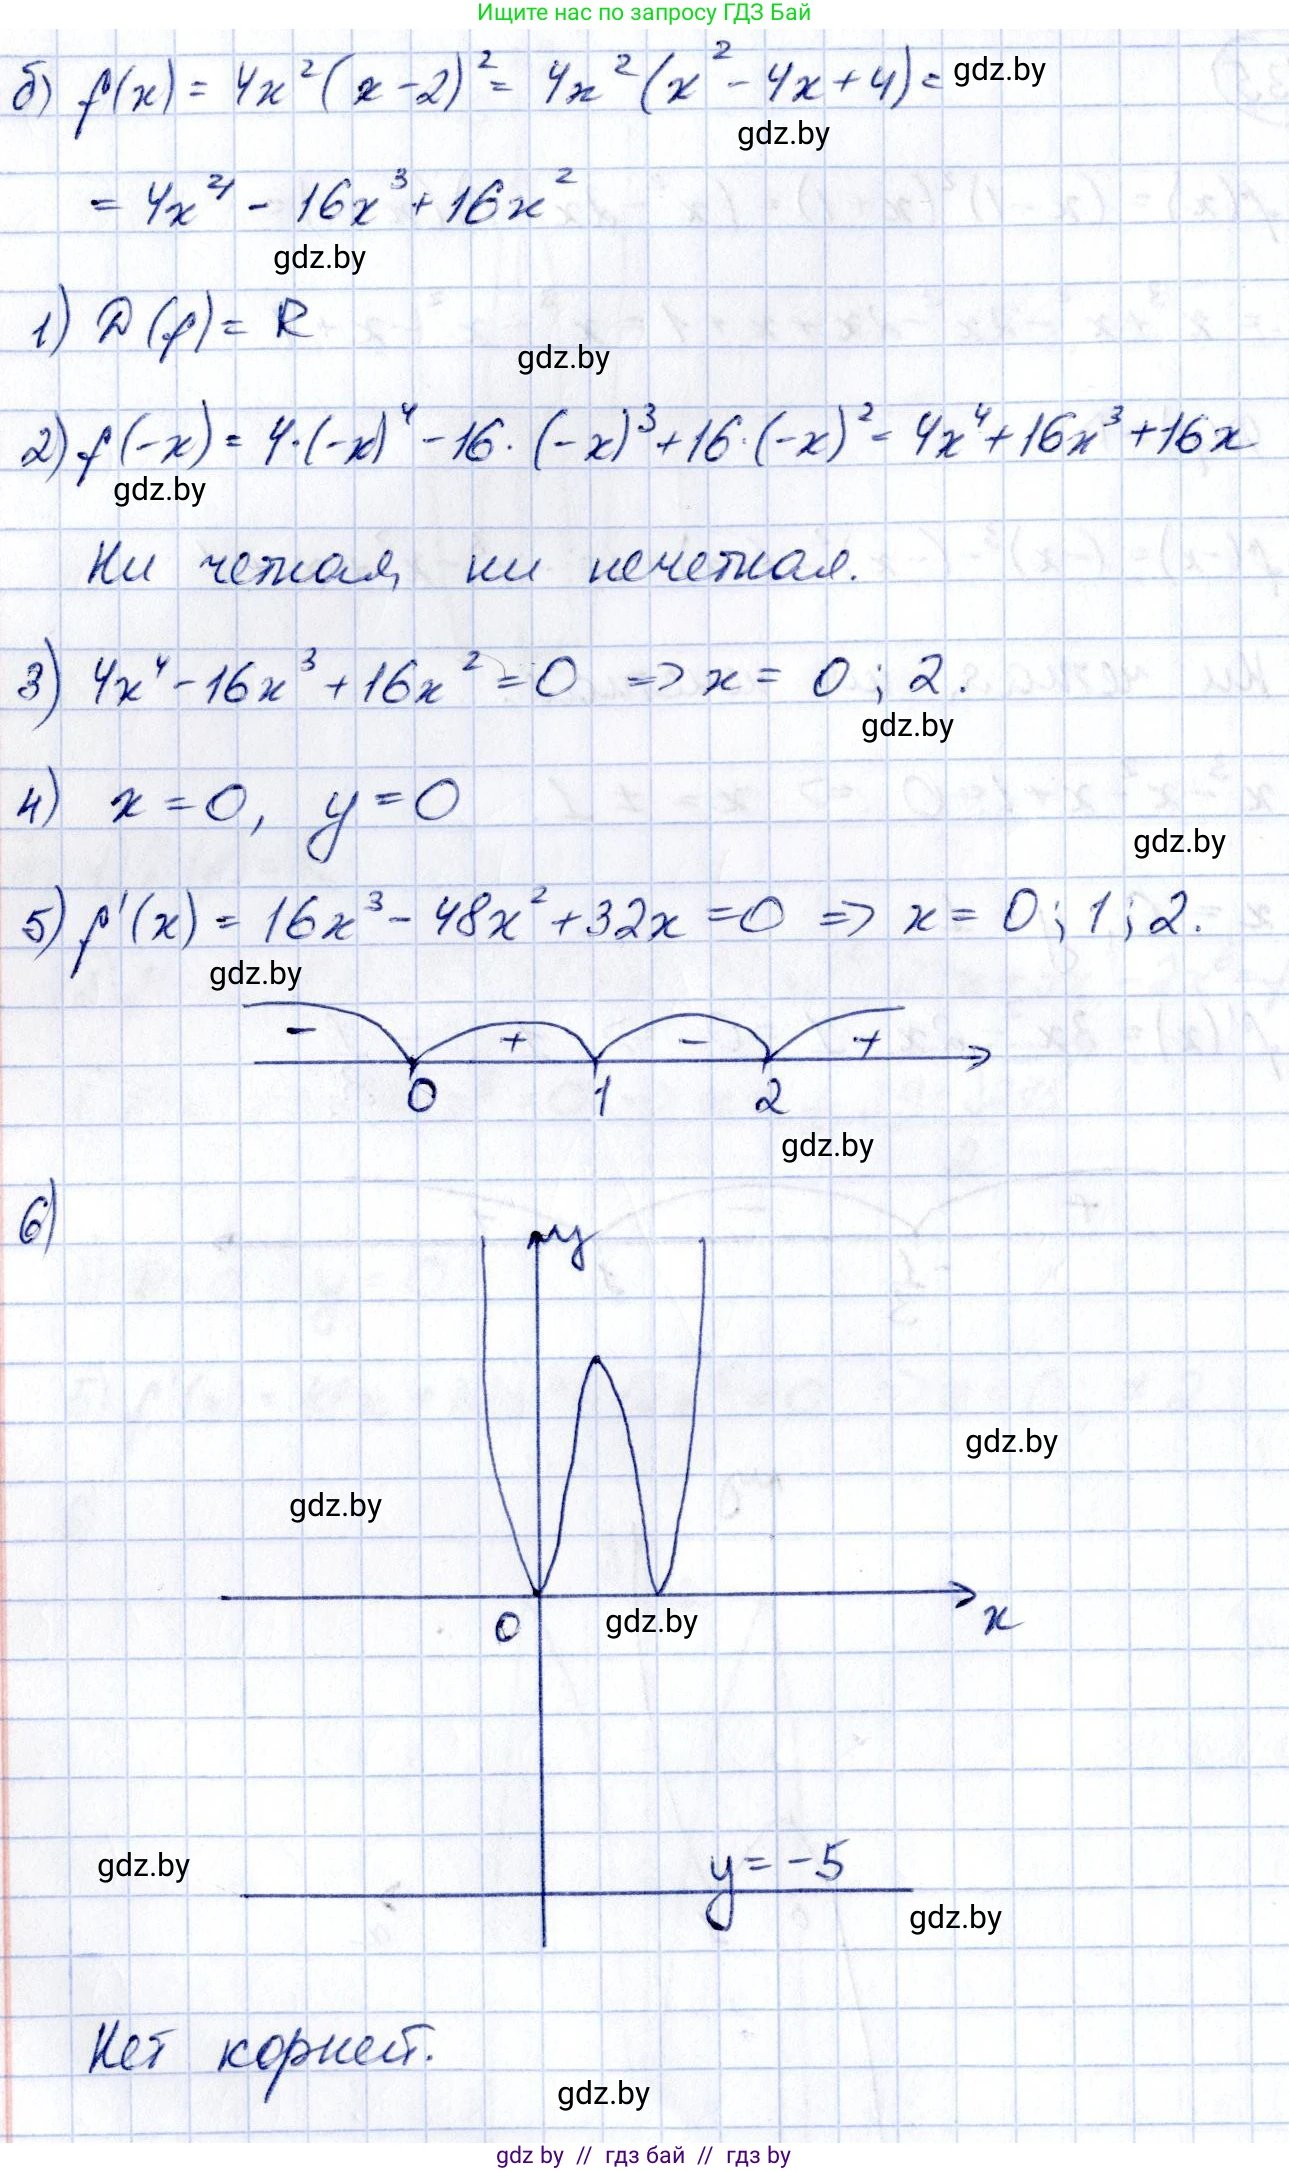 Ищите нас по запросу ГДЗ Бай
б) f(x) = 4x²(x-2)² = 4x²(x² - 4x + 4) = gdz.by
gdz.by
= 4x⁴ - 16x³ + 16x²
gdz.by
1) D(f) = R
gdz.by
2) f(-x) = 4·(-x)⁴ - 16·(-x)³ + 16·(-x)² = 4x⁴ + 16x³ + 16x
gdz.by
Ни четная, ни нечетная.
3) 4x⁴ - 16x³ + 16x² = 0 => x = 0; 2.
gdz.by
4) x = 0, y = 0
gdz.by
5) f'(x) = 16x³ - 48x² + 32x = 0 => x = 0; 1; 2.
gdz.by
- + - +
0 1 2
gdz.by
6)
y
gdz.by
gdz.by
0 gdz.by x
y = -5
gdz.by
gdz.by
Нет корней.
gdz.by
gdz by // гдз бай // гдз by